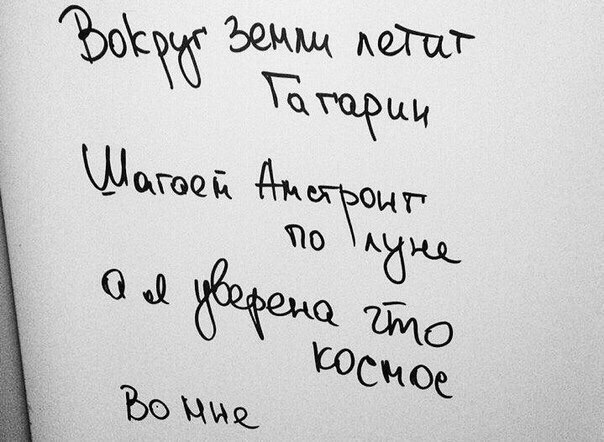 Вокруг Земли летит
Гагарин
Шагает Амстронг
по луне
а я уверена что
космос
Во мне